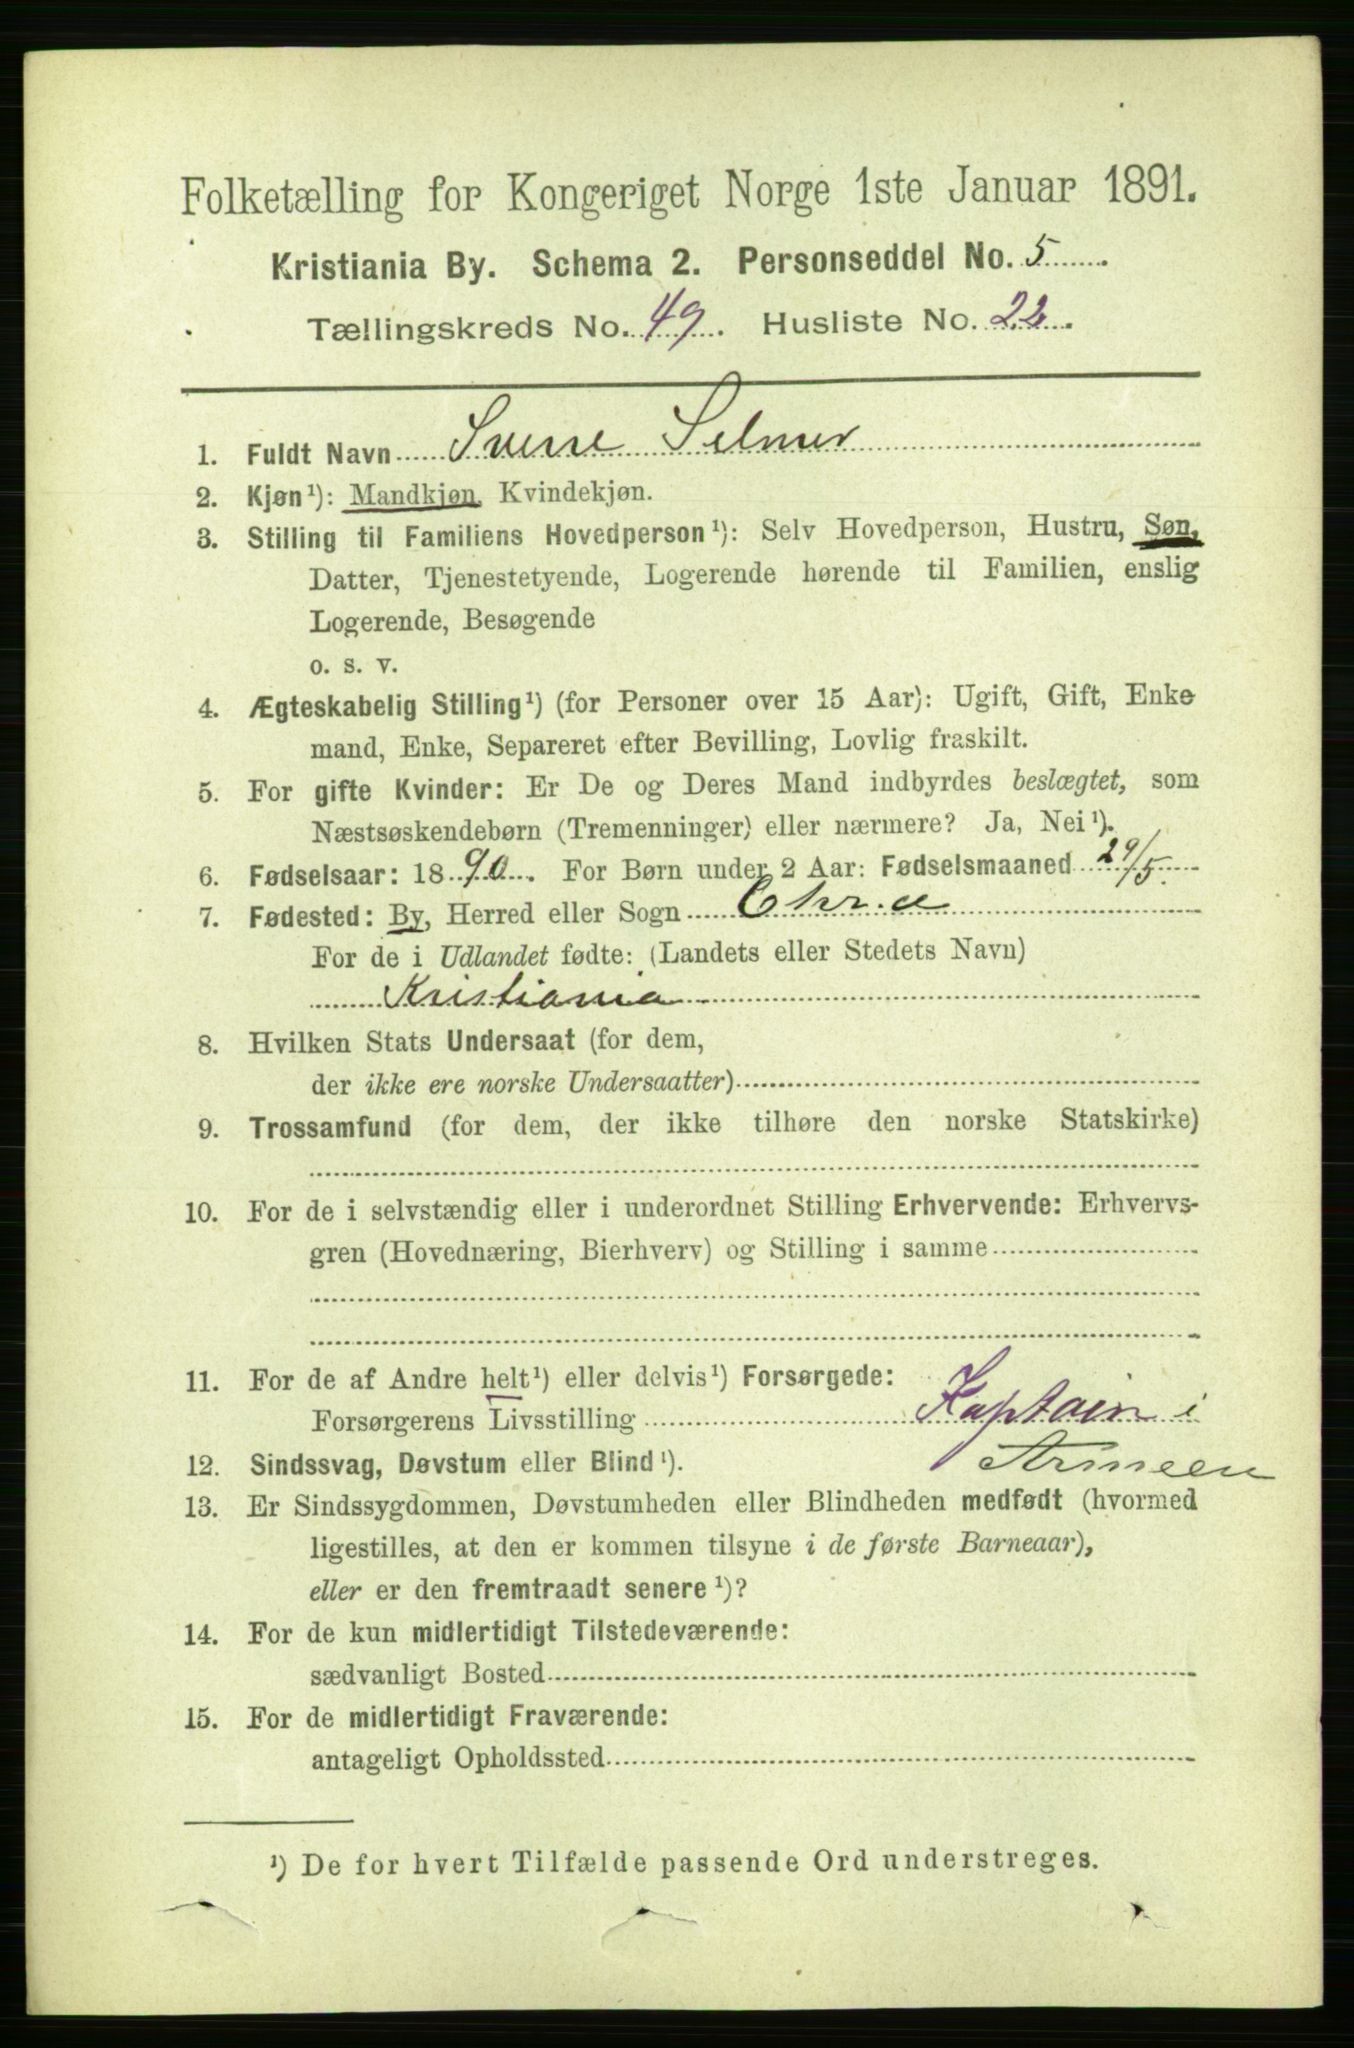 Folketælling for Kongeriget Norge 1ste Januar 1891.
Kristiania By. Schema 2. Personseddel No. 5
Tællingskreds No. 49. Husliste No. 22.
1. Fuldt Navn Sverre Selmer
2. Kjøn¹): Mandkjøn, Kvindekjøn.
3. Stilling til Familiens Hovedperson¹): Selv Hovedperson, Hustru, Søn,
Datter, Tjenestetyende, Logerende hørende til Familien, enslig
Logerende, Besøgende
o. s. v.
4. Ægteskabelig Stilling¹) (for Personer over 15 Aar): Ugift, Gift, Enke
mand, Enke, Separeret efter Bevilling, Lovlig fraskilt.
5. For gifte Kvinder: Er De og Deres Mand indbyrdes beslægtet, som
Næstsøskendebørn (Tremenninger) eller nærmere? Ja, Nei¹).
6. Fødselsaar: 1890. For Børn under 2 Aar: Fødselsmaaned 29/5.
7. Fødested: By, Herred eller Sogn Chr.a
For de i Udlandet fødte: (Landets eller Stedets Navn)
Kristiania
8. Hvilken Stats Undersaat (for dem,
der ikke ere norske Undersaatter)
9. Trossamfund (for dem, der ikke tilhøre den norske Statskirke)
10. For de i selvstændig eller i underordnet Stilling Erhvervende: Erhvervs-
gren (Hovednæring, Bierhverv) og Stilling i samme
11. For de af Andre helt¹) eller delvis¹) Forsørgede:
Forsørgerens Livsstilling Kaptain i
Armeen
12. Sindssvag, Døvstum eller Blind¹).
13. Er Sindssygdommen, Døvstumheden eller Blindheden medfødt (hvormed
ligestilles, at den er kommen tilsyne i de første Barneaar),
eller er den fremtraadt senere¹)?
14. For de kun midlertidigt Tilstedeværende:
sædvanligt Bosted
15. For de midlertidigt Fraværende:
antageligt Opholdssted
¹) De for hvert Tilfælde passende Ord understreges.